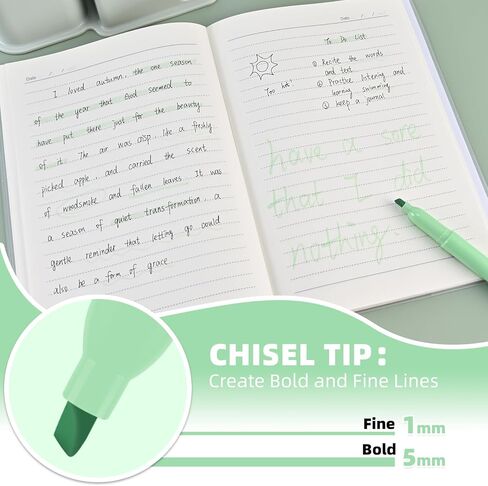 Date / /
I loved autumn, the one season
of the year that God seemed to
have put there just for the beauty
of it. The air was crisp, like a freshly
picked apple, and carried the scent
of woodsmoke and fallen leaves. It was
a season of quiet transformation, a
gentle reminder that letting go could
also be a form of grace.
Date / /
To Do List
① Recite the words
and text
② Practice listening and
learning swimming
③ keep a journal
Too hot!
have a sore
that I did
nothing.
CHISEL TIP:
Create Bold and Fine Lines
Fine 1mm
Bold 5mm